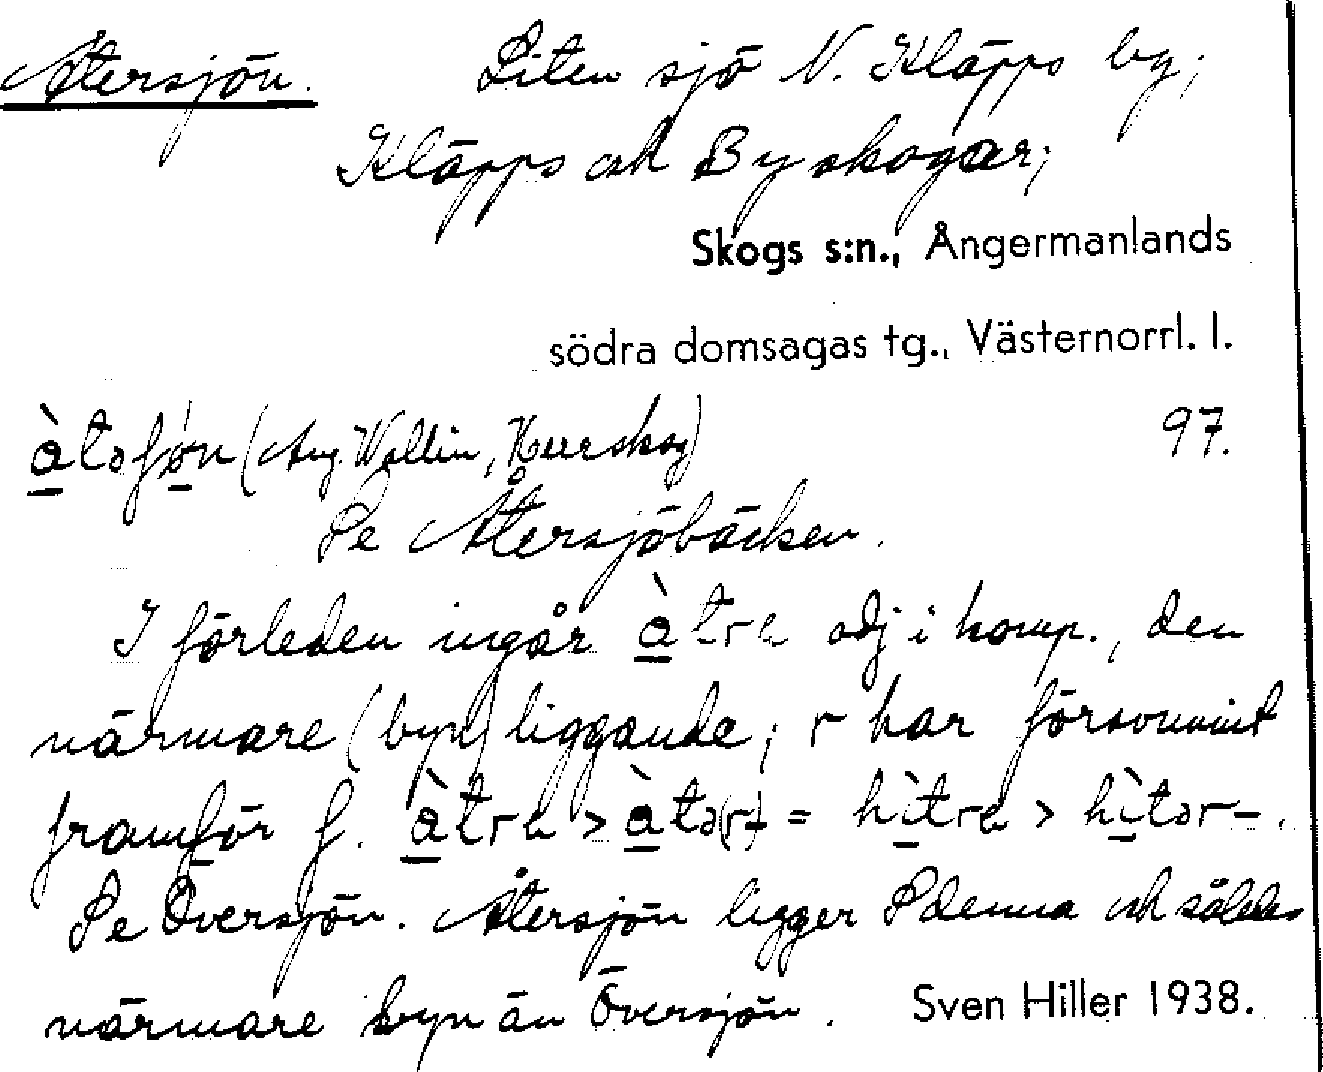 Återsjön. Liten sjö N. Kläpps by;
Kläpps och By skogar;
Skogs s:n., Ångermanlands
södra domsagas tg., Västernorrl. l.
97.
(Aug. Wallin, Kerrskog)
Se Återsjöbäcken.
I förleden ingår àtrɐ adj i komp., den
närmare (byn) liggande; r har försvunnit
framför ʃ. àtrɐ > àtə(r)- = hìtrɐ > hìtər-.
Se Översjön. Återsjön ligger S denna och således
närmare byn än Översjön. Sven Hiller 1938.